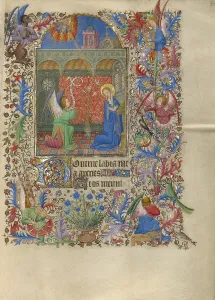 Domine labia me
a aperies
os meum